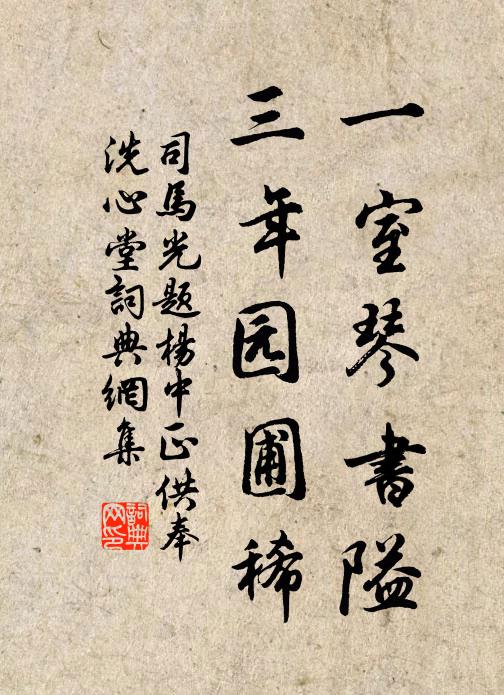 一室琴書隘
三年园圃稀
司馬光題楊中正供奉
洗心堂詞典網集
詞典网印